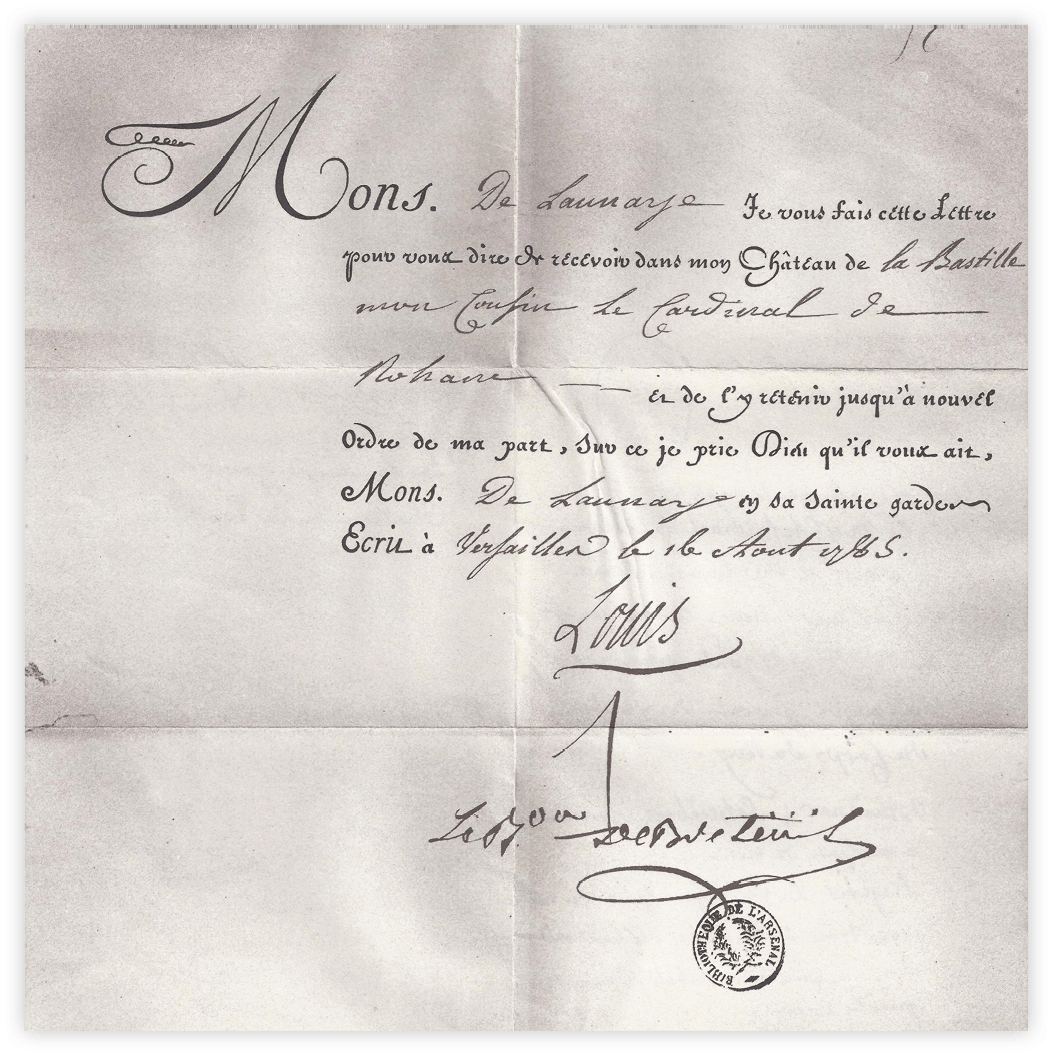 Mons. De Launaye Je vous fais cette Lettre
pour vous dire de recevoir dans mon Château de la Bastille
mon Cousin le Cardinal de
Rohan et de l'y retenir jusqu'à nouvel
Ordre de ma part, Sur ce je prie Dieu qu'il vous ait,
Mons. De Launay en sa Sainte garde
Ecrit à Versailles le 16 Aout 1785.
Louis
Le Bon De Breteuil
BIBLIOTHEQUE DE L'ARSENAL